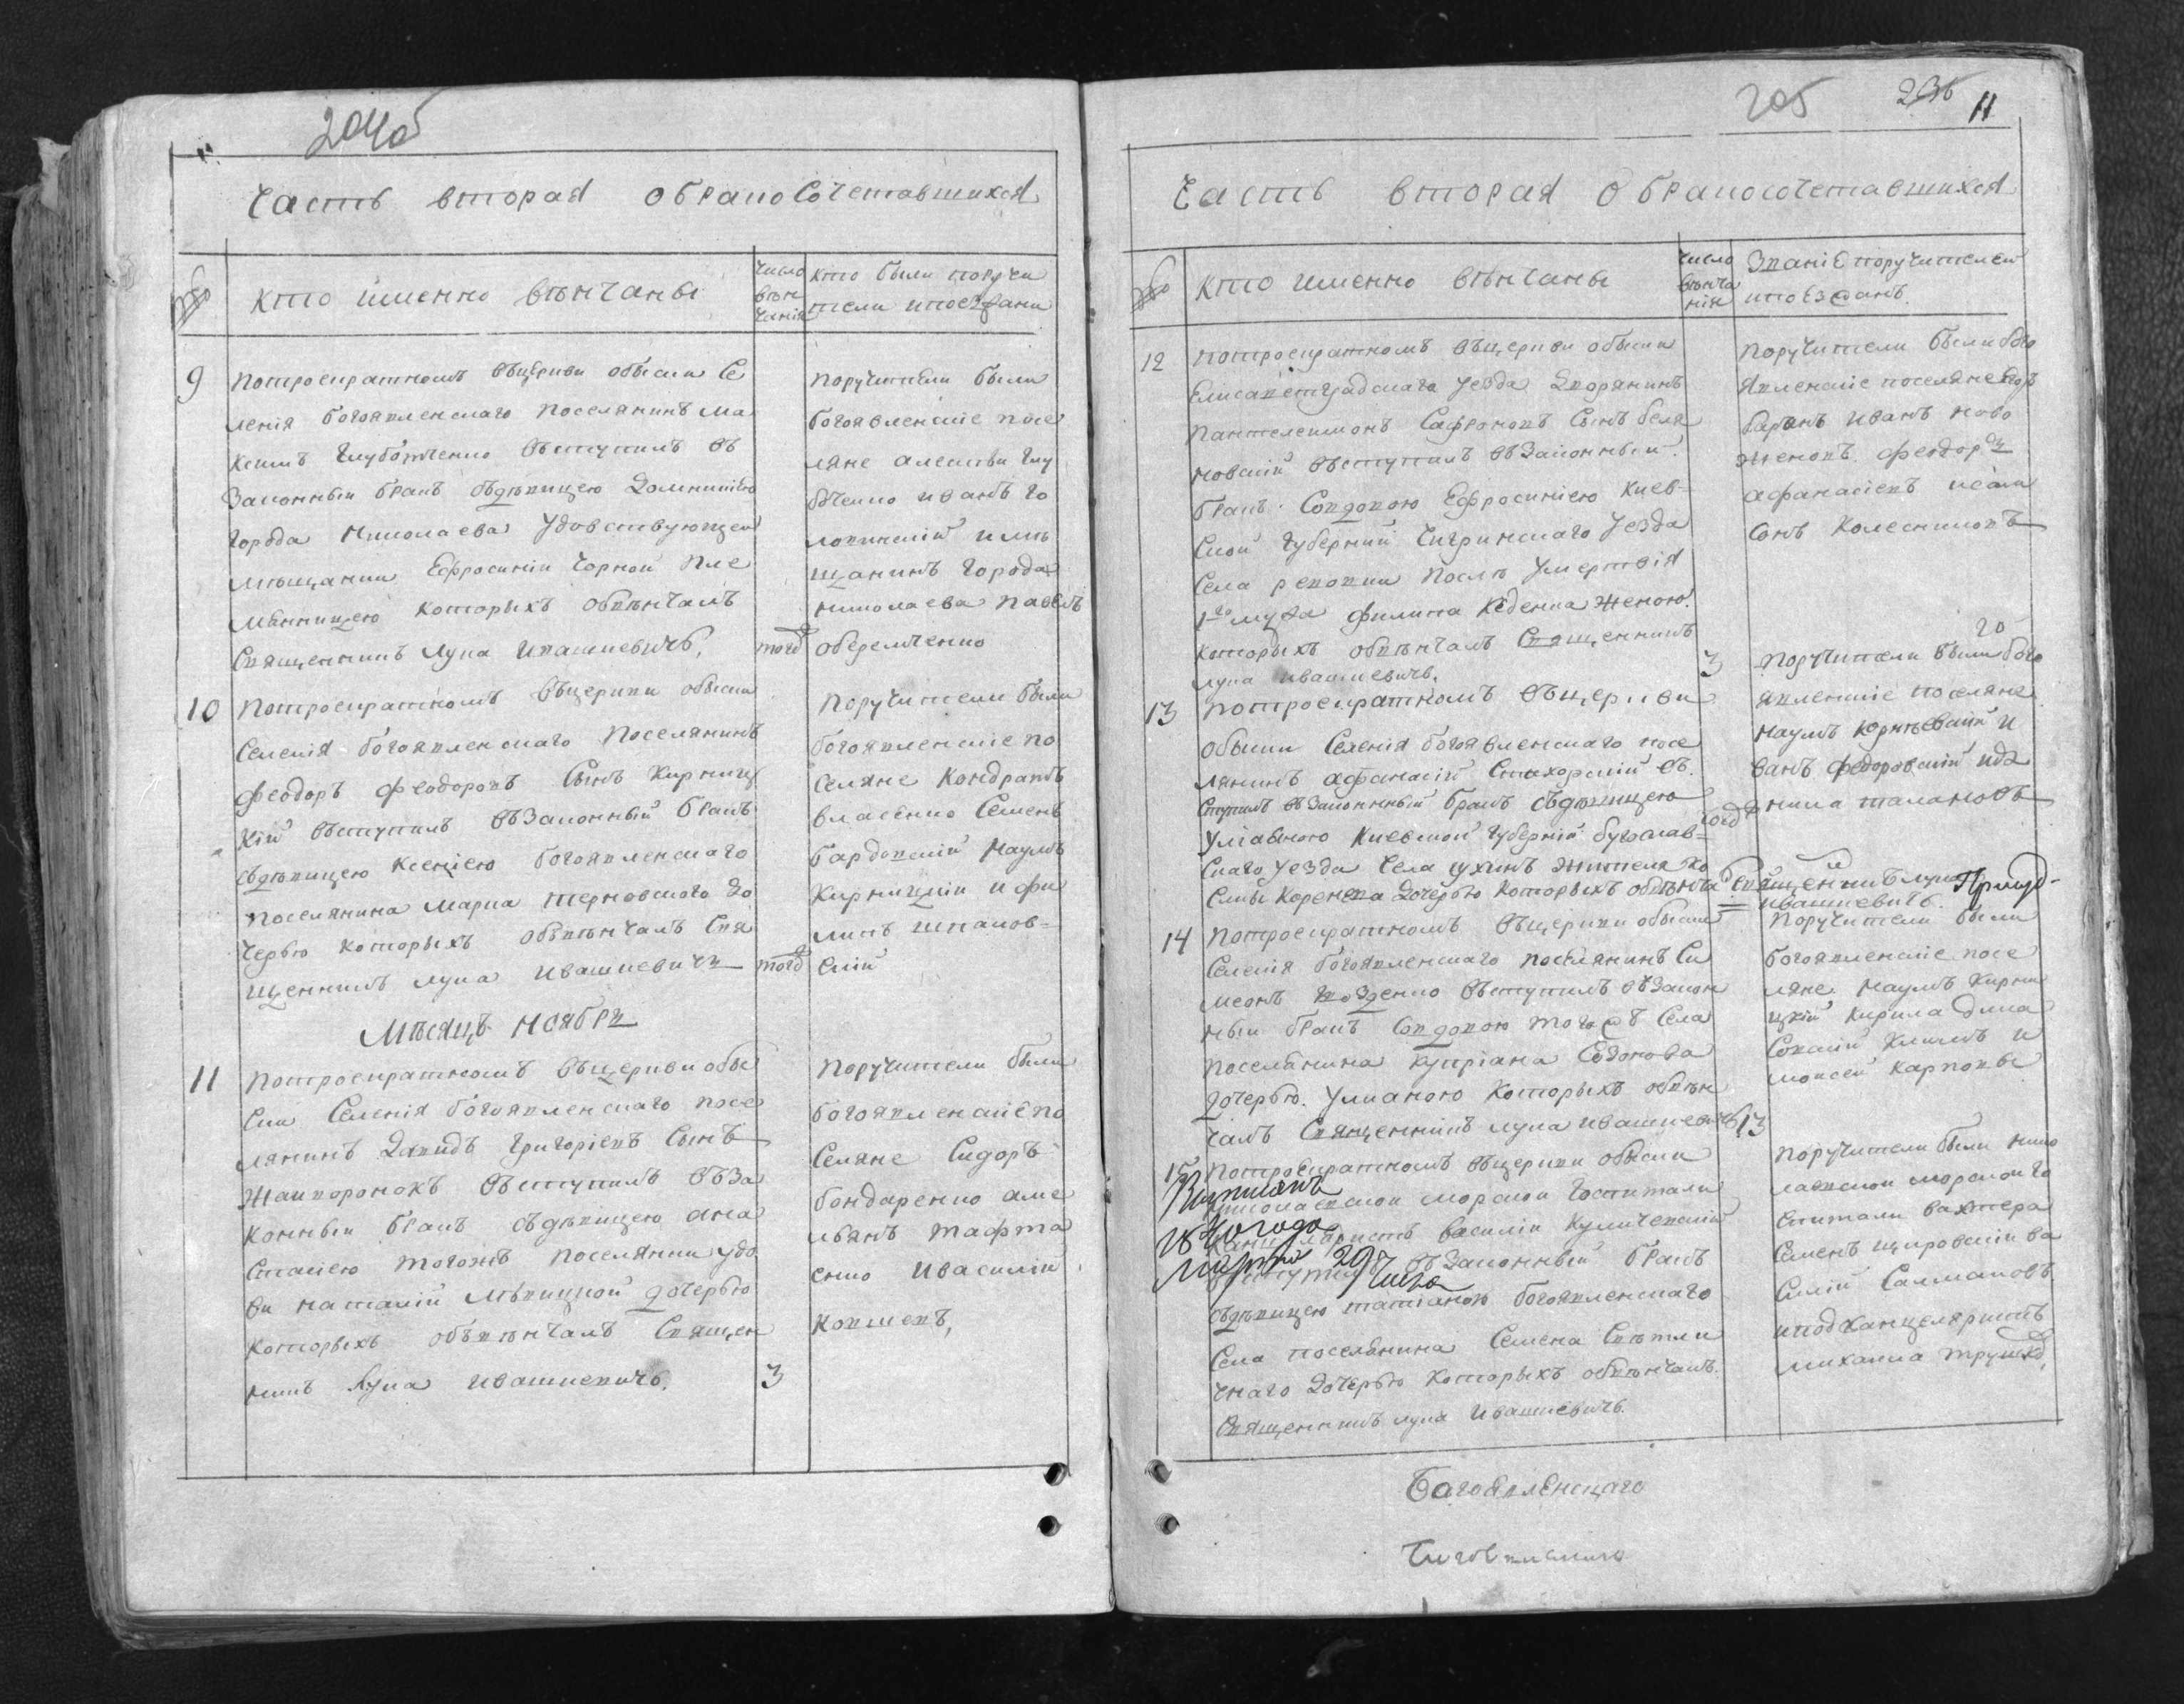 204об
Часть вторая обракосочетавшихся
№
Кто именно венчаны
число
вѣн
чанія
Кто были поручи
тели ипоезжани
9
Потроекратномъ въцеркви обыски Се
ленія богоявленскаго Поселянинъ Ма
ксимъ Глубоченко вступилъ въ
Законный бракъ съдѣвицею Домникіею
города Николаева Удовствующей
мѣщанки Ефросиніи Чорной Пле
мянницею которыхъ обвѣнчалъ
Священникъ Лука Ивашкевичъ,
тогд
Поручители были
богоявленскіе посе
ляне Алексѣи Глу
боченко иванъ го
ловинскій имѣ
щанинъ города
Николаева Павелъ
оберемченко
10
Потроекратномъ въцеркви обыски
Селенія богоявленскаго Поселянинъ
Феодоръ Феодоровъ Сынъ Кирниц
кій вступилъ въЗаконный бракъ
съдѣвицею Ксеніею богоявленскаго
поселянина Марка терновскаго до
черью которыхъ обвѣнчалъ Свя
щенникъ Лука Ивашкевичъ
тогд
Поручители были
богоявленскіе по
селяне Кондратъ
власенко Семенъ
бардовскій Наумъ
Кирницкіи и фи
липъ шпаков=
скій
Мѣсяцъ Ноябрь
11
Потроекратномъ въцеркви обы
ски Селенія богоявленскаго посе
лянинъ Давидъ Григоріевъ Сынъ
Жаворонокъ вступилъ въЗа
конный бракъ съдѣвицею ана
стасіею тогожъ поселянки удо
ви наталіи Мѣвицкой дочерью
которыхъ объвѣнчалъ Священ
никъ Лука Ивашкевичъ.
3
Поручители были
богоявленскіе по
селяне Сидоръ
бондаренко аме
льянъ тафта
енко ивасилій
Ковшевъ,
205
11
Часть вторая Обракосочетавшихся
№
Кто именно вѣнчаны
число
вѣнча
нія
Званіе поручителей
ипоезжанъ.
12
Потроекратномъ въцеркви обыски
Елисаветградскаго Уезда Дворянинъ
Пантелеимонъ Сафроновъ Сынъ беля
новскій вступилъ въЗаконный
бракъ Совдовою Ефросиніею Киев=
ской Губерніи Чигринскаго Уезда
Села реповки послѣ Умертвія
1го мужа филипа Кеденка женою.
которыхъ обвѣнчалъ Священникъ
лука ивашкевичъ.
3
Поручители были бого
явленскіе поселяне
баранъ иванъ ново
женовъ. феодоръ
афанасіевъ исам
сонъ Колесниковъ
13
Потроекратномъ въцеркви
обыски Селенія богоявленскаго посе
лянинъ афанасій Стахорскій въ
ступилъ въЗаконный бракъ съдѣвицею
Уліаною Киевской Губерніи богослав=
скаго Уезда Села сухинъ жителя
Коренева Дочерью которыхъ обвѣнча
Священникъ лука
ивашкевичъ.
20
Поручители были бого
явленскіе поселяне
Наумъ Корневскій и
ванъ федоровскій ида
нила талановъ
14
Потроекратномъ въцеркви обыски
Селенія богоявленскаго поселянинъ Си
меонъ Позденко вступилъ въЗакон
ный бракъ Совдовою тогожъ Села
поселянина Купріана Содонова
дочерью. Ульаною которыхъ обвѣн
чалъ Священникъ лука ивашкевичъ
13
Поручители были
богоявленскіе посе
ляне Наумъ Кирни
цкій Кирила дика
совскій Климъ и
моисей Карповы
15
Потроекратномъ въцеркви обыски
Николаевской морской Госпитали
Канцеляристъ василіи Куличевскій
вступилъ въЗаконный бракъ
съдѣвицею татіаною богоявленскаго
Села поселянина Семена Свѣтли
чнаго Дочерью которыхъ обвѣнчалъ
Священникъ лука Ивашкевичъ.
Поручители были нико
лаевской морской го
спитали вахтера
Семенъ щировскіи ва
силій Салмановъ
иподканцеляристъ
михаила
40 года
марта 29 числа
Богоявленскаго